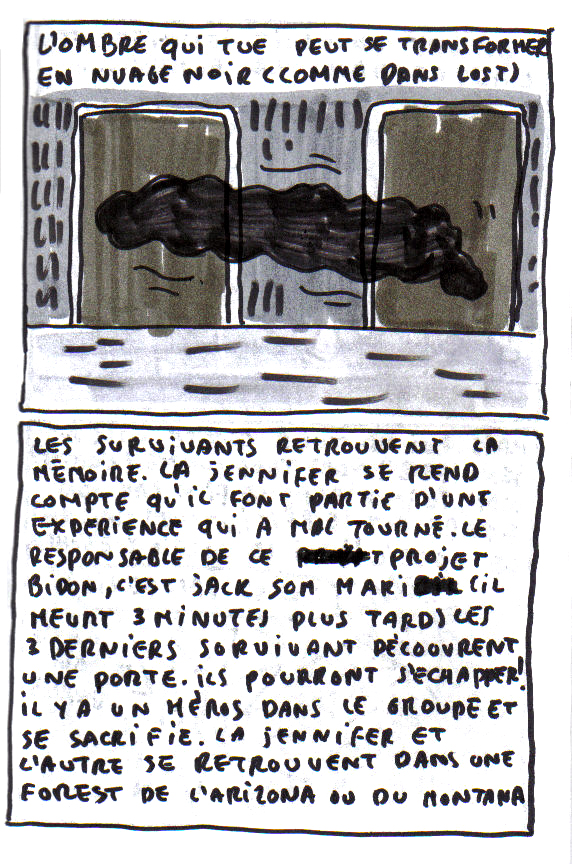 L'OMBRE QUI TUE PEUT SE TRANSFORMER
EN NUAGE NOIR (COMME DANS LOST)
LES SURVIVANTS RETROUVENT LA
MÉMOIRE. LA JENNIFER SE REND
COMPTE QU'IL FONT PARTIE D'UNE
EXPERIENCE QUI A MAL TOURNÉ. LE
RESPONSABLE DE CE PROJET
BIDON, C'EST JACK SON MARI (IL
MEURT 3 MINUTES PLUS TARD) LES
3 DERNIERS SURVIVANT DÉCOUVRENT
UNE PORTE. ILS POURRONT S'ECHAPPER!
IL Y A UN HÉROS DANS LE GROUPE ET
SE SACRIFIE. LA JENNIFER ET
L'AUTRE SE RETROUVENT DANS UNE
FOREST DE L'ARIZONA OU DU MONTANA